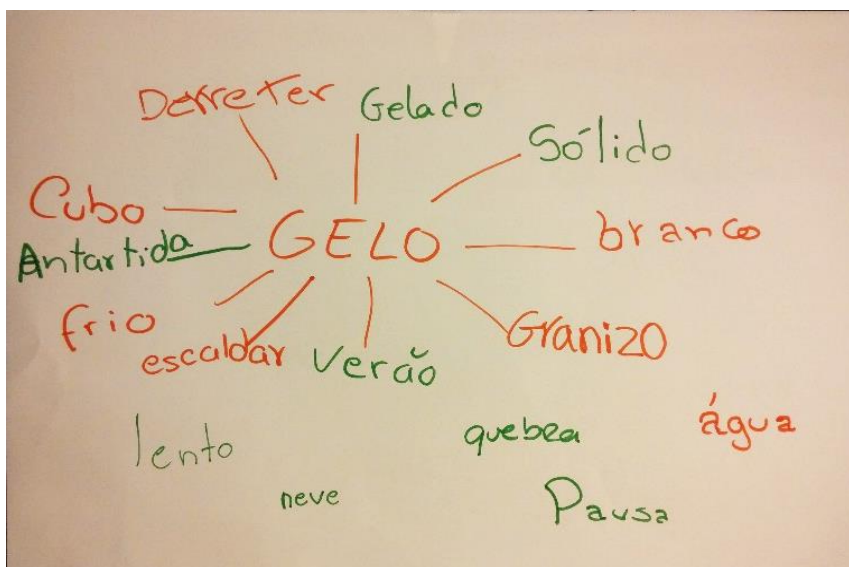 Derreter
Gelado
Sólido
Cubo
GELO
branco
Antartida
frio
escaldar
Verão
Granizo
lento
quebra
água
neve
Pausa